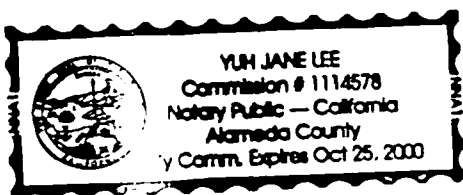 YUH JANE LEE
Commission # 1114578
Notary Public — California
Alameda County
y Comm. Expires Oct 25, 2000
NNA1
NNA1